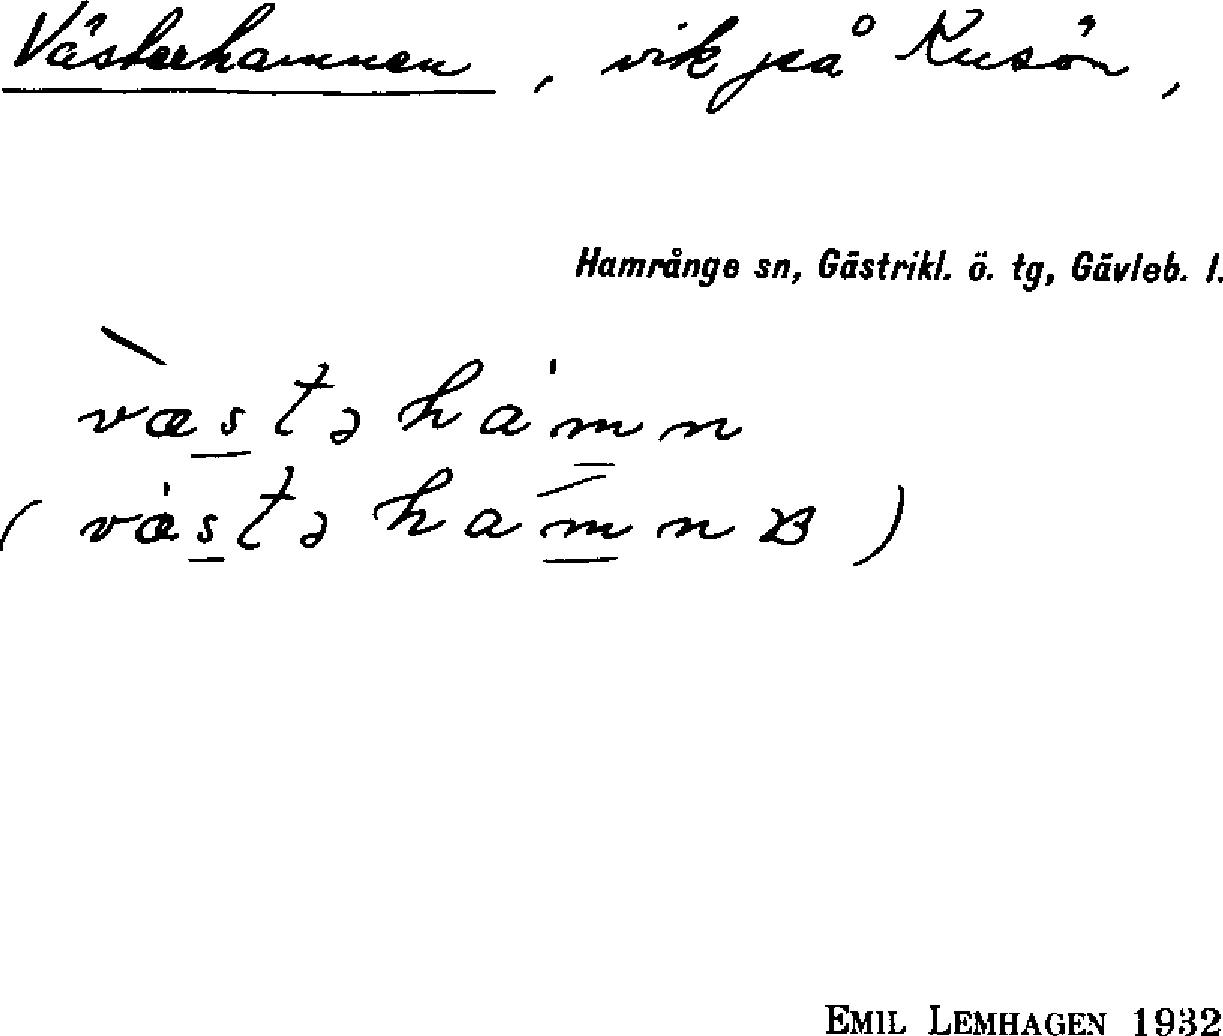 Västerhamnen, vik på Kusön,
Hamrånge sn, Gästrikl. ö. tg, Gävleb. l.
væstəhamn
(væstəhamnɞ)
EMIL LEMHAGEN 1932